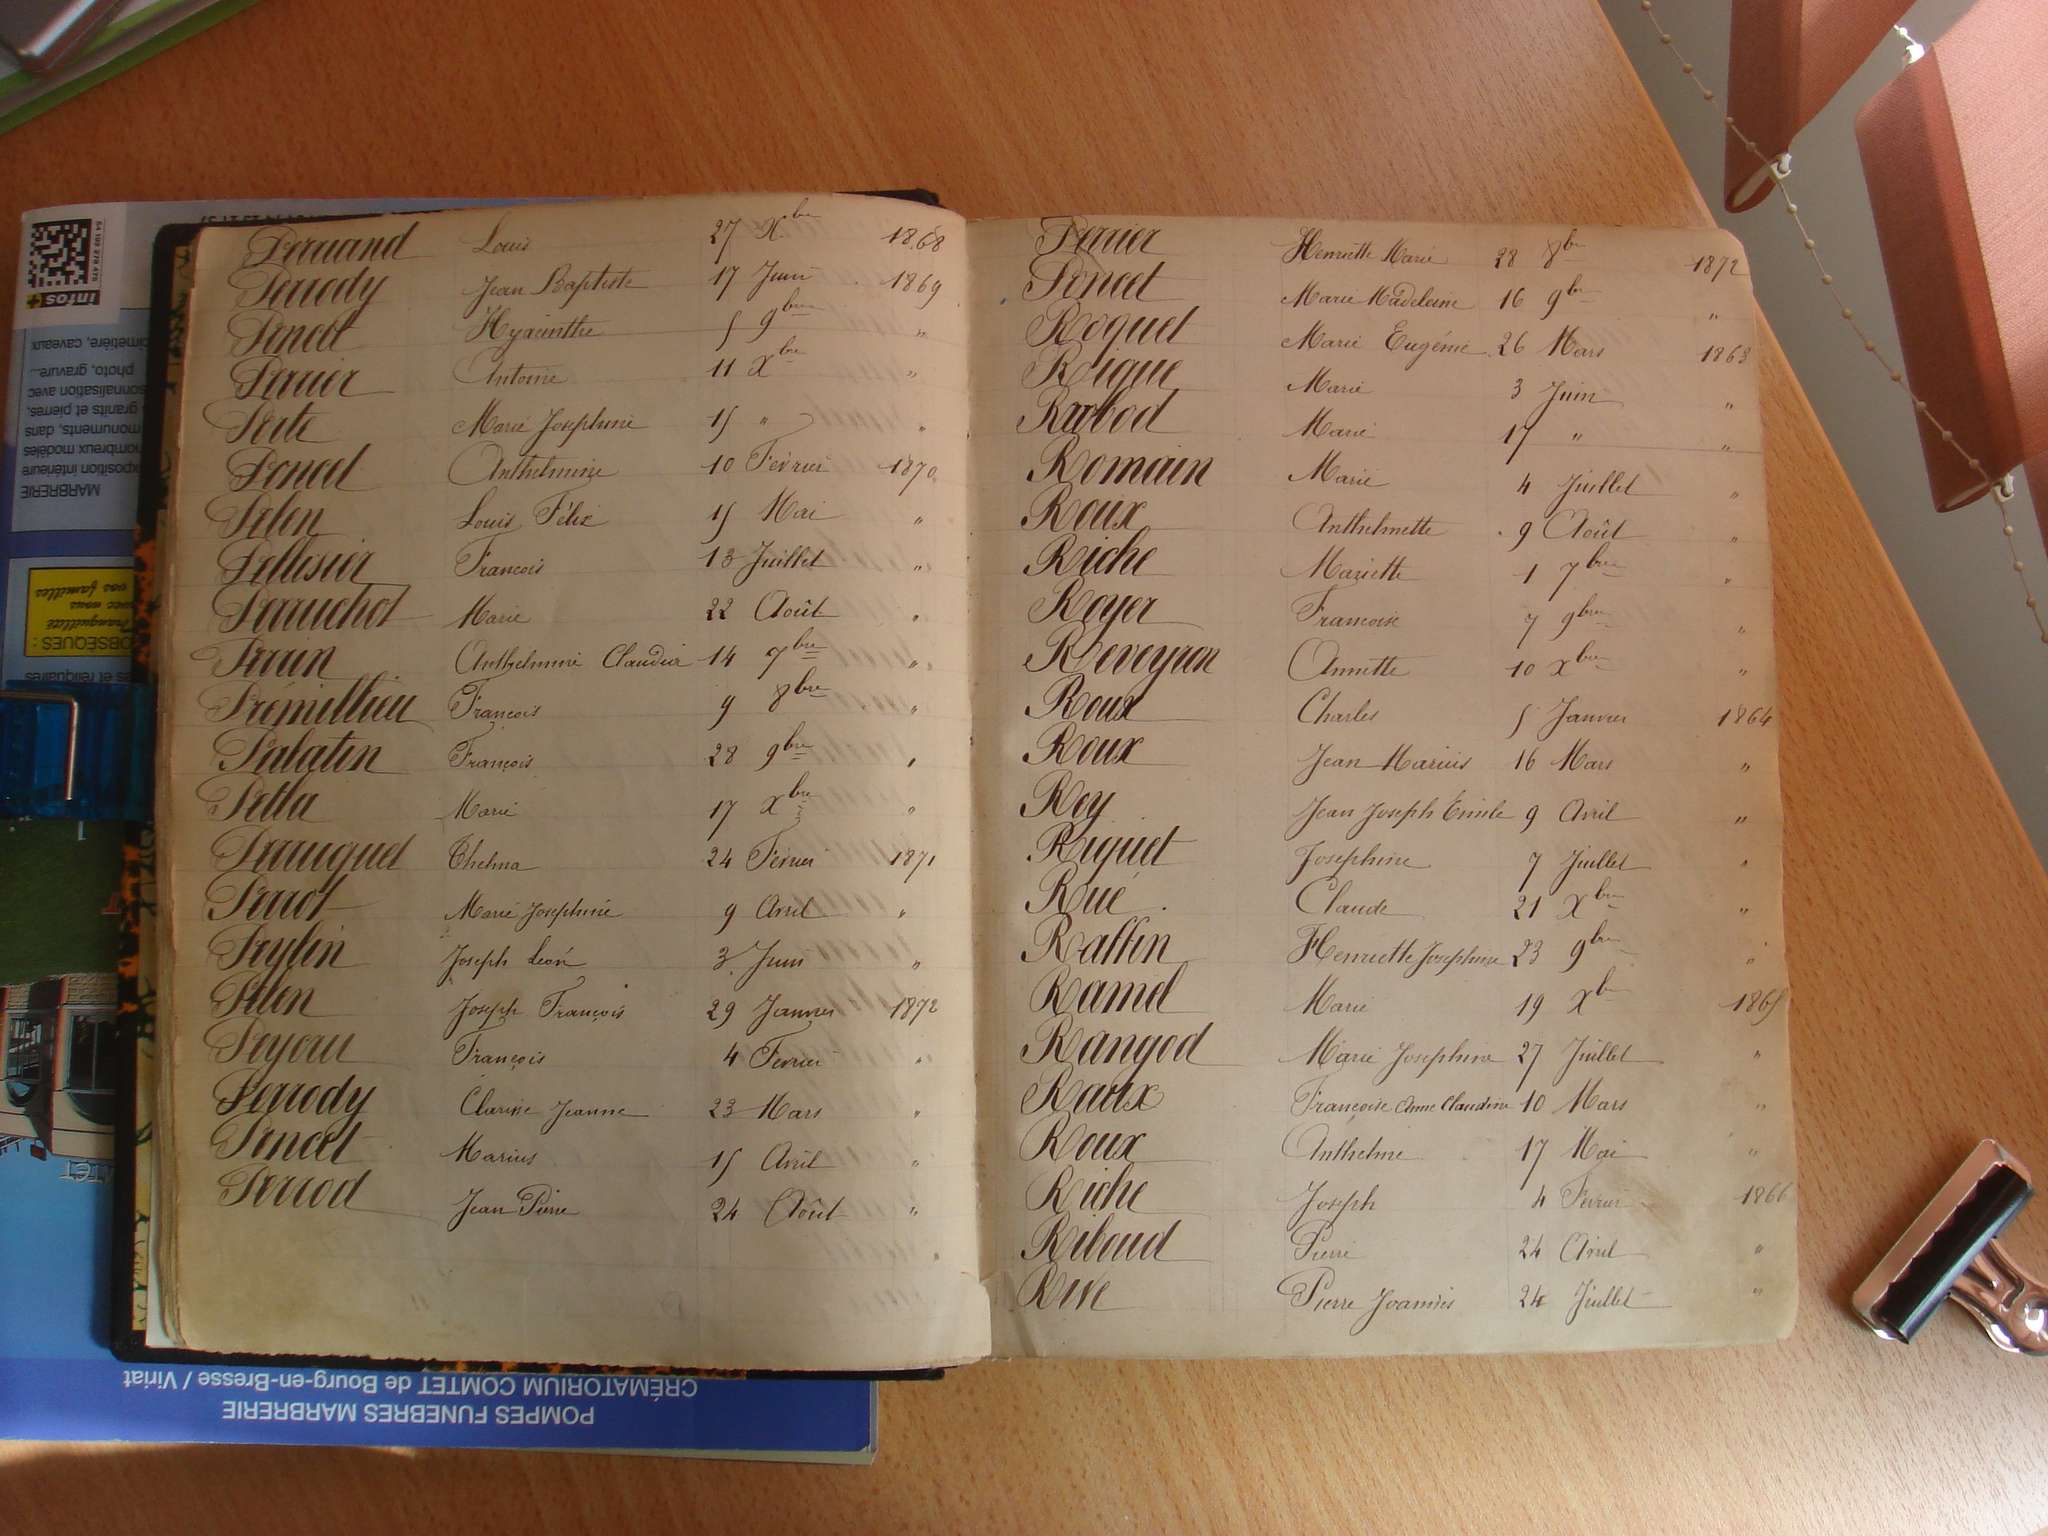 Pernand Louis 27 Xbre 1868
Perrody Jean Baptiste 17 Juin 1869
Poncet Hyacinthe 5 9bre "
Perrier Antoine 11 Xbre "
Perte Marie Joséphine 15 " "
Poncet Anthelmine 10 Février 1870
Pelen Louis Félix 15 Mai "
Pellisier François 13 Juillet "
Perruchot Marie 22 Août "
Perrin Anthelmine Claudia 14 7bre "
Prémillieu François 9 8bre "
Palatin François 28 9bre "
Petta Marie 17 Xbre "
Thelma 24 Février 1871
Perrot Marie Joséphine 9 Avril "
Joseph Léon 3 Juin "
Pelen Joseph François 29 Janvier 1872
François 4 Février "
Perrody Clarisse Jeanne 23 Mars "
Poncet Marius 15 Avril "
Perrod Jean Pierre 24 Août "
Perrier Henriette Marie 28 8bre 1872
Poncet Marie Madeleine 16 9bre "
Roquet Marie Eugénie 26 Mars 1863
Rigue Marie 3 Juin "
Rabod Marie 17 " "
Romain Marie 4 Juillet "
Roux Anthelmette 9 Août "
Riche Mariette 1 7bre "
Royer Françoise 7 9bre "
Reveyron Annette 10 Xbre "
Roux Charles 5 Janvier 1864
Roux Jean Marius 16 Mars "
Rey Jean Joseph Émile 9 Avril "
Riquet Joséphine 7 Juillet "
Rué Claude 21 Xbre "
Raffin Henriette Joséphine 23 9bre "
Ramel Marie 19 Xbre 1865
Rangod Marie Joséphine 27 Juillet "
Raux Françoise Anne Claudine 10 Mars "
Roux Anthelme 17 Mai "
Riche Joseph 4 Février 1866
Ribaud Pierre 24 Avril "
Rive Pierre Joannès 24 Juillet "
infos+
cimetière, caveaux
photo, gravure...
sonnalisation avec
granits et pierres,
monuments, dans
nombreux modèles
xposition intérieure
MARBRERIE
avec nous
vos familles
Tranquillité
OBSÈQUES :
es et reliquaires
POMPES FUNEBRES MARBRERIE
CRÉMATORIUM COMTET de Bourg-en-Bresse / Viriat